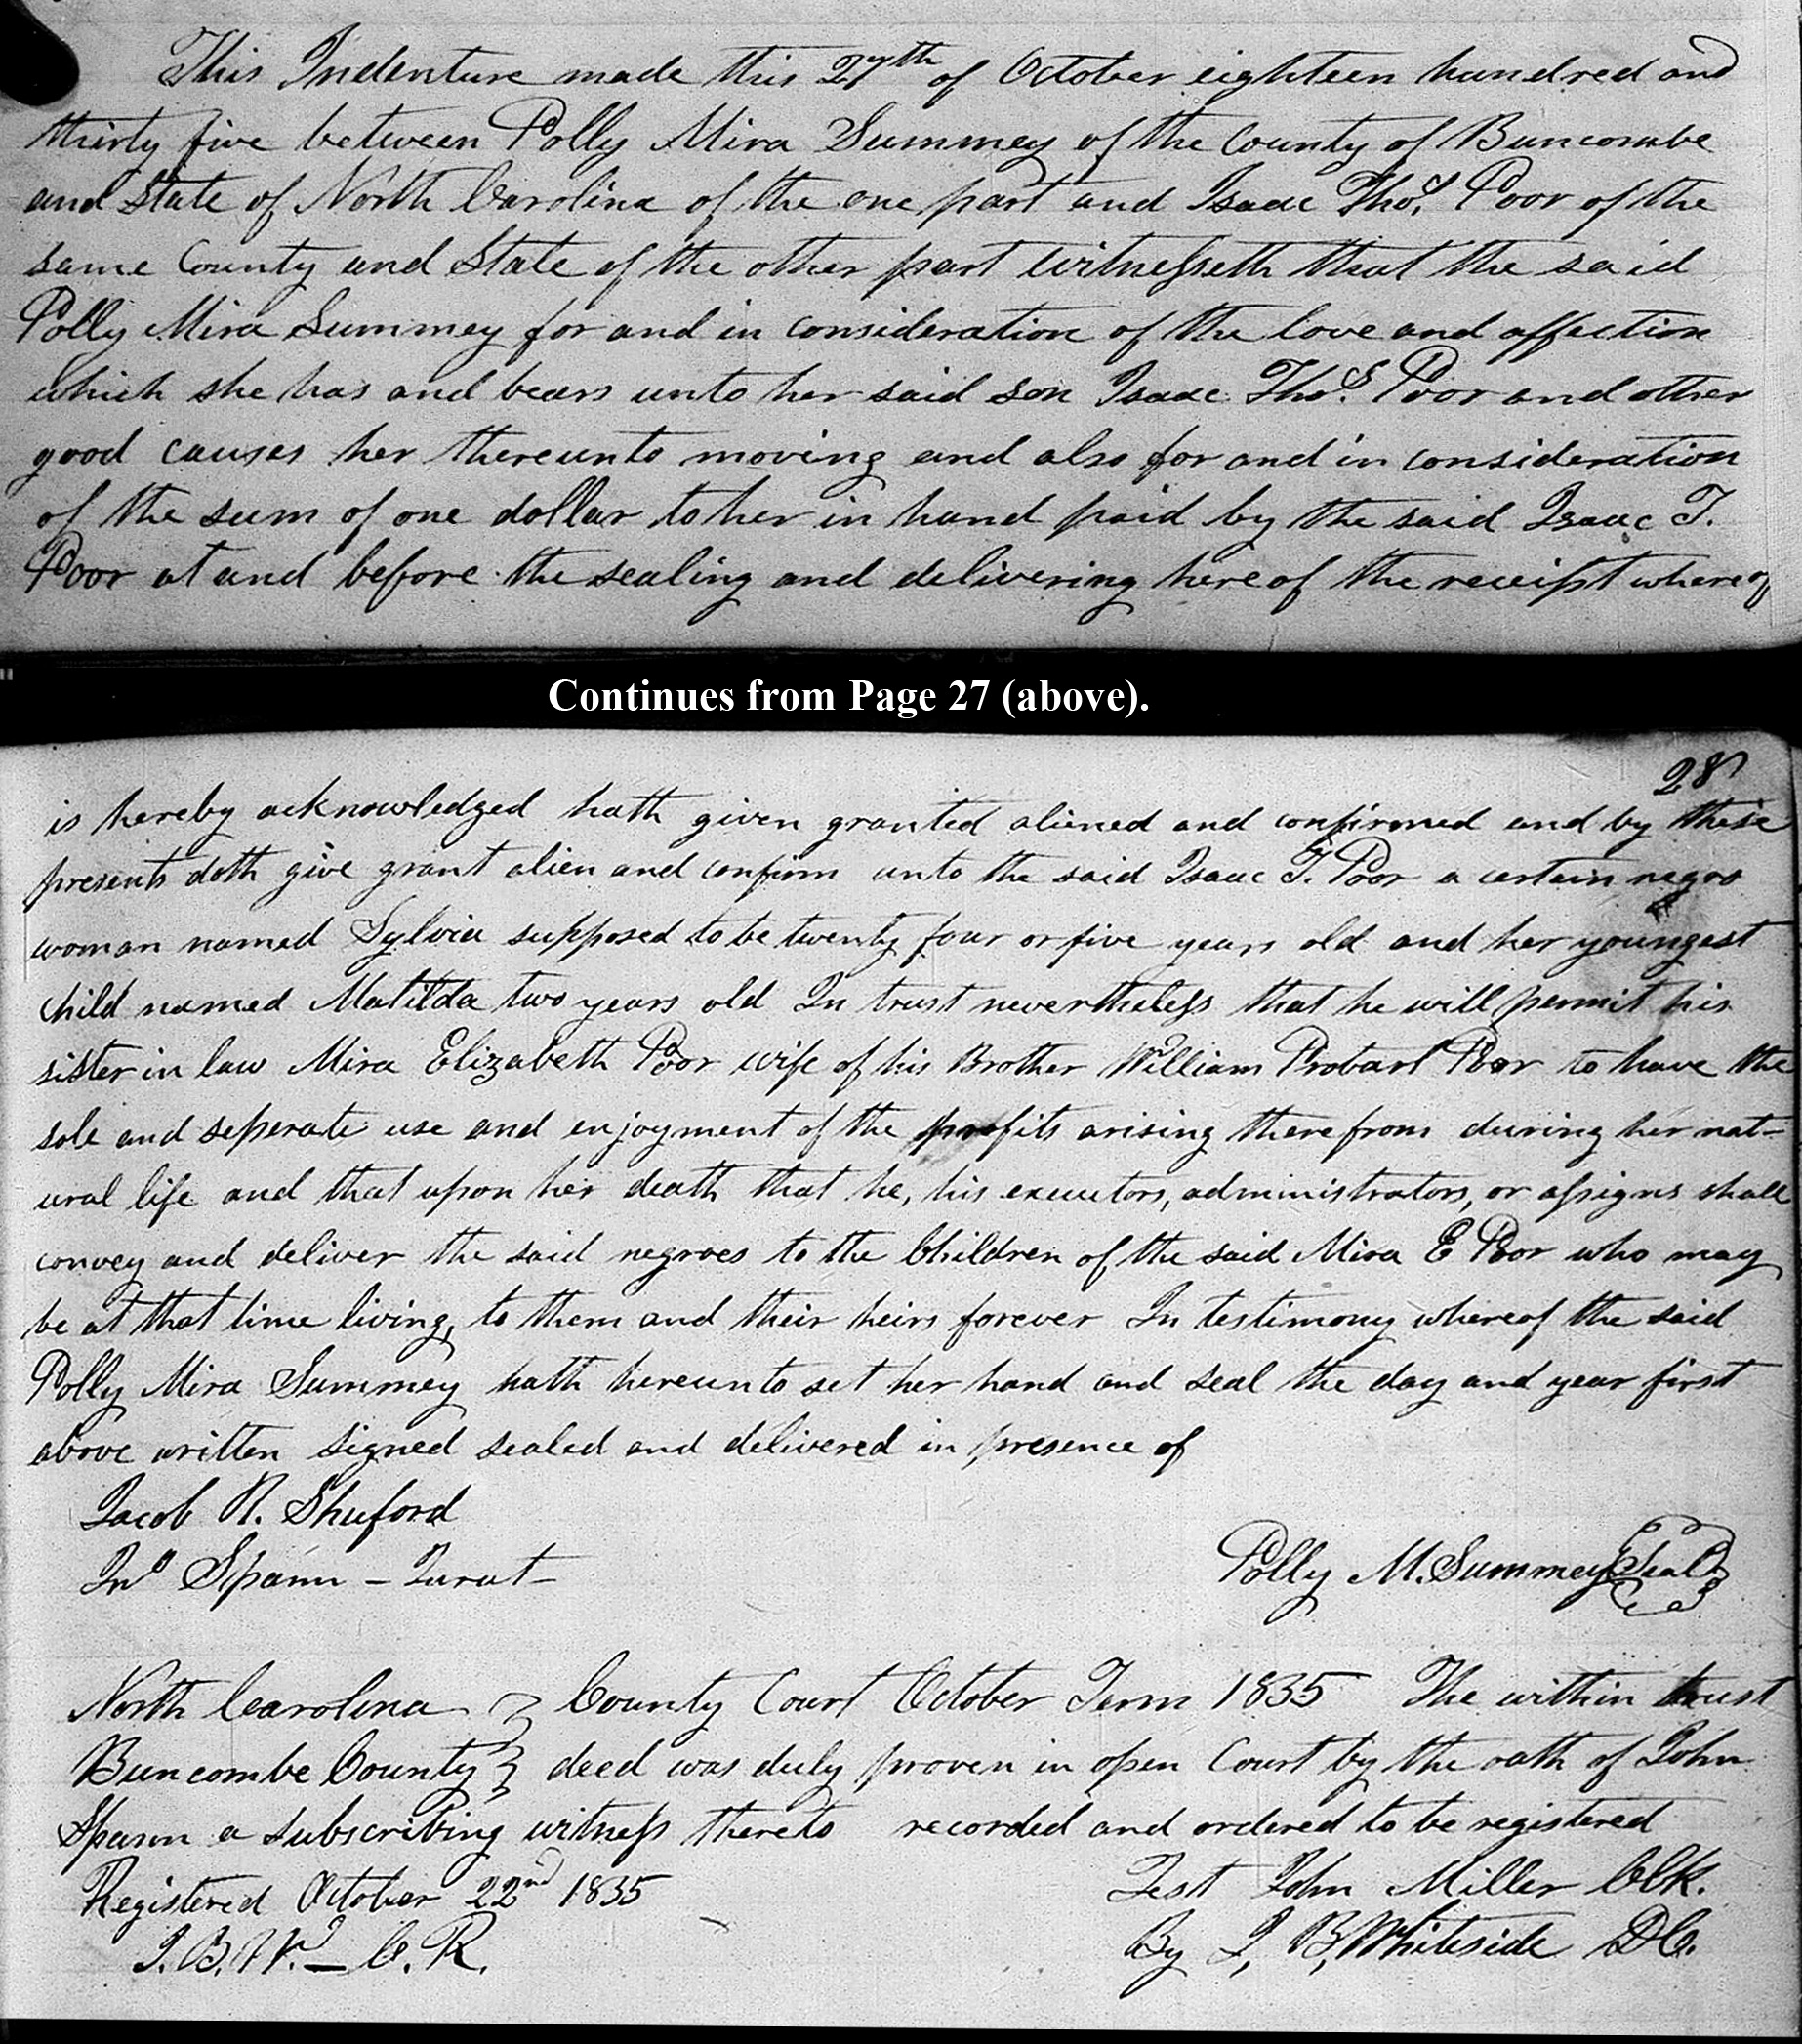 This Indenture made this 27th of October eighteen hundred and
thirty five between Polly Mira Summey of the County of Buncombe
and State of North Carolina of the one part and Isaac Thos. Poor of the
same County and State of the other part witnesseth that the said
Polly Mira Summey for and in consideration of the love and affection
which she has and bears unto her said son Isaac Thos. Poor and other
good causes her thereunto moving and also for and in consideration
of the sum of one dollar to her in hand paid by the said Isaac T.
Poor at and before the sealing and delivering hereof the receipt whereof
Continues from Page 27 (above).
28
is hereby acknowledged hath given granted aliened and confirmed and by these
presents doth give grant alien and confirm unto the said Isaac T. Poor a certain negro
woman named Sylvia supposed to be twenty four or five years old and her youngest
child named Matilda two years old In trust nevertheless that he will permit his
sister in law Mira Elizabeth Poor wife of his Brother William Probart Poor to have the
sole and seperate use and enjoyment of the profits arising therefrom during her nat-
ural life and that upon her death that he, his executors, administrators, or assigns shall
convey and deliver the said negroes to the Children of the said Mira E Poor who may
be at that time living, to them and their heirs forever In testimony whereof the said
Polly Mira Summey hath hereunto set her hand and seal the day and year first
above written signed sealed and delivered in presence of
Jacob R. Shuford
Jno Spann - Jurat
Polly M. Summey Seal
North Carolina } County Court October Term 1835 The within trust
Buncombe County } deed was duly proven in open Court by the oath of John
Spann a subscribing witness thereto recorded and ordered to be registered
Registered October 22nd 1835
Test John Miller Clk.
J. B. Wd - C. R.
By J, B, Whiteside DC.